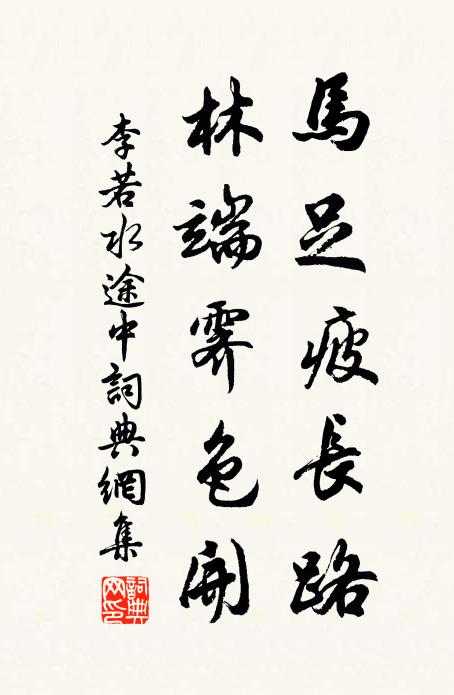 馬足疲長路
林端霽色開
李若水途中詞典網集
詞典網印